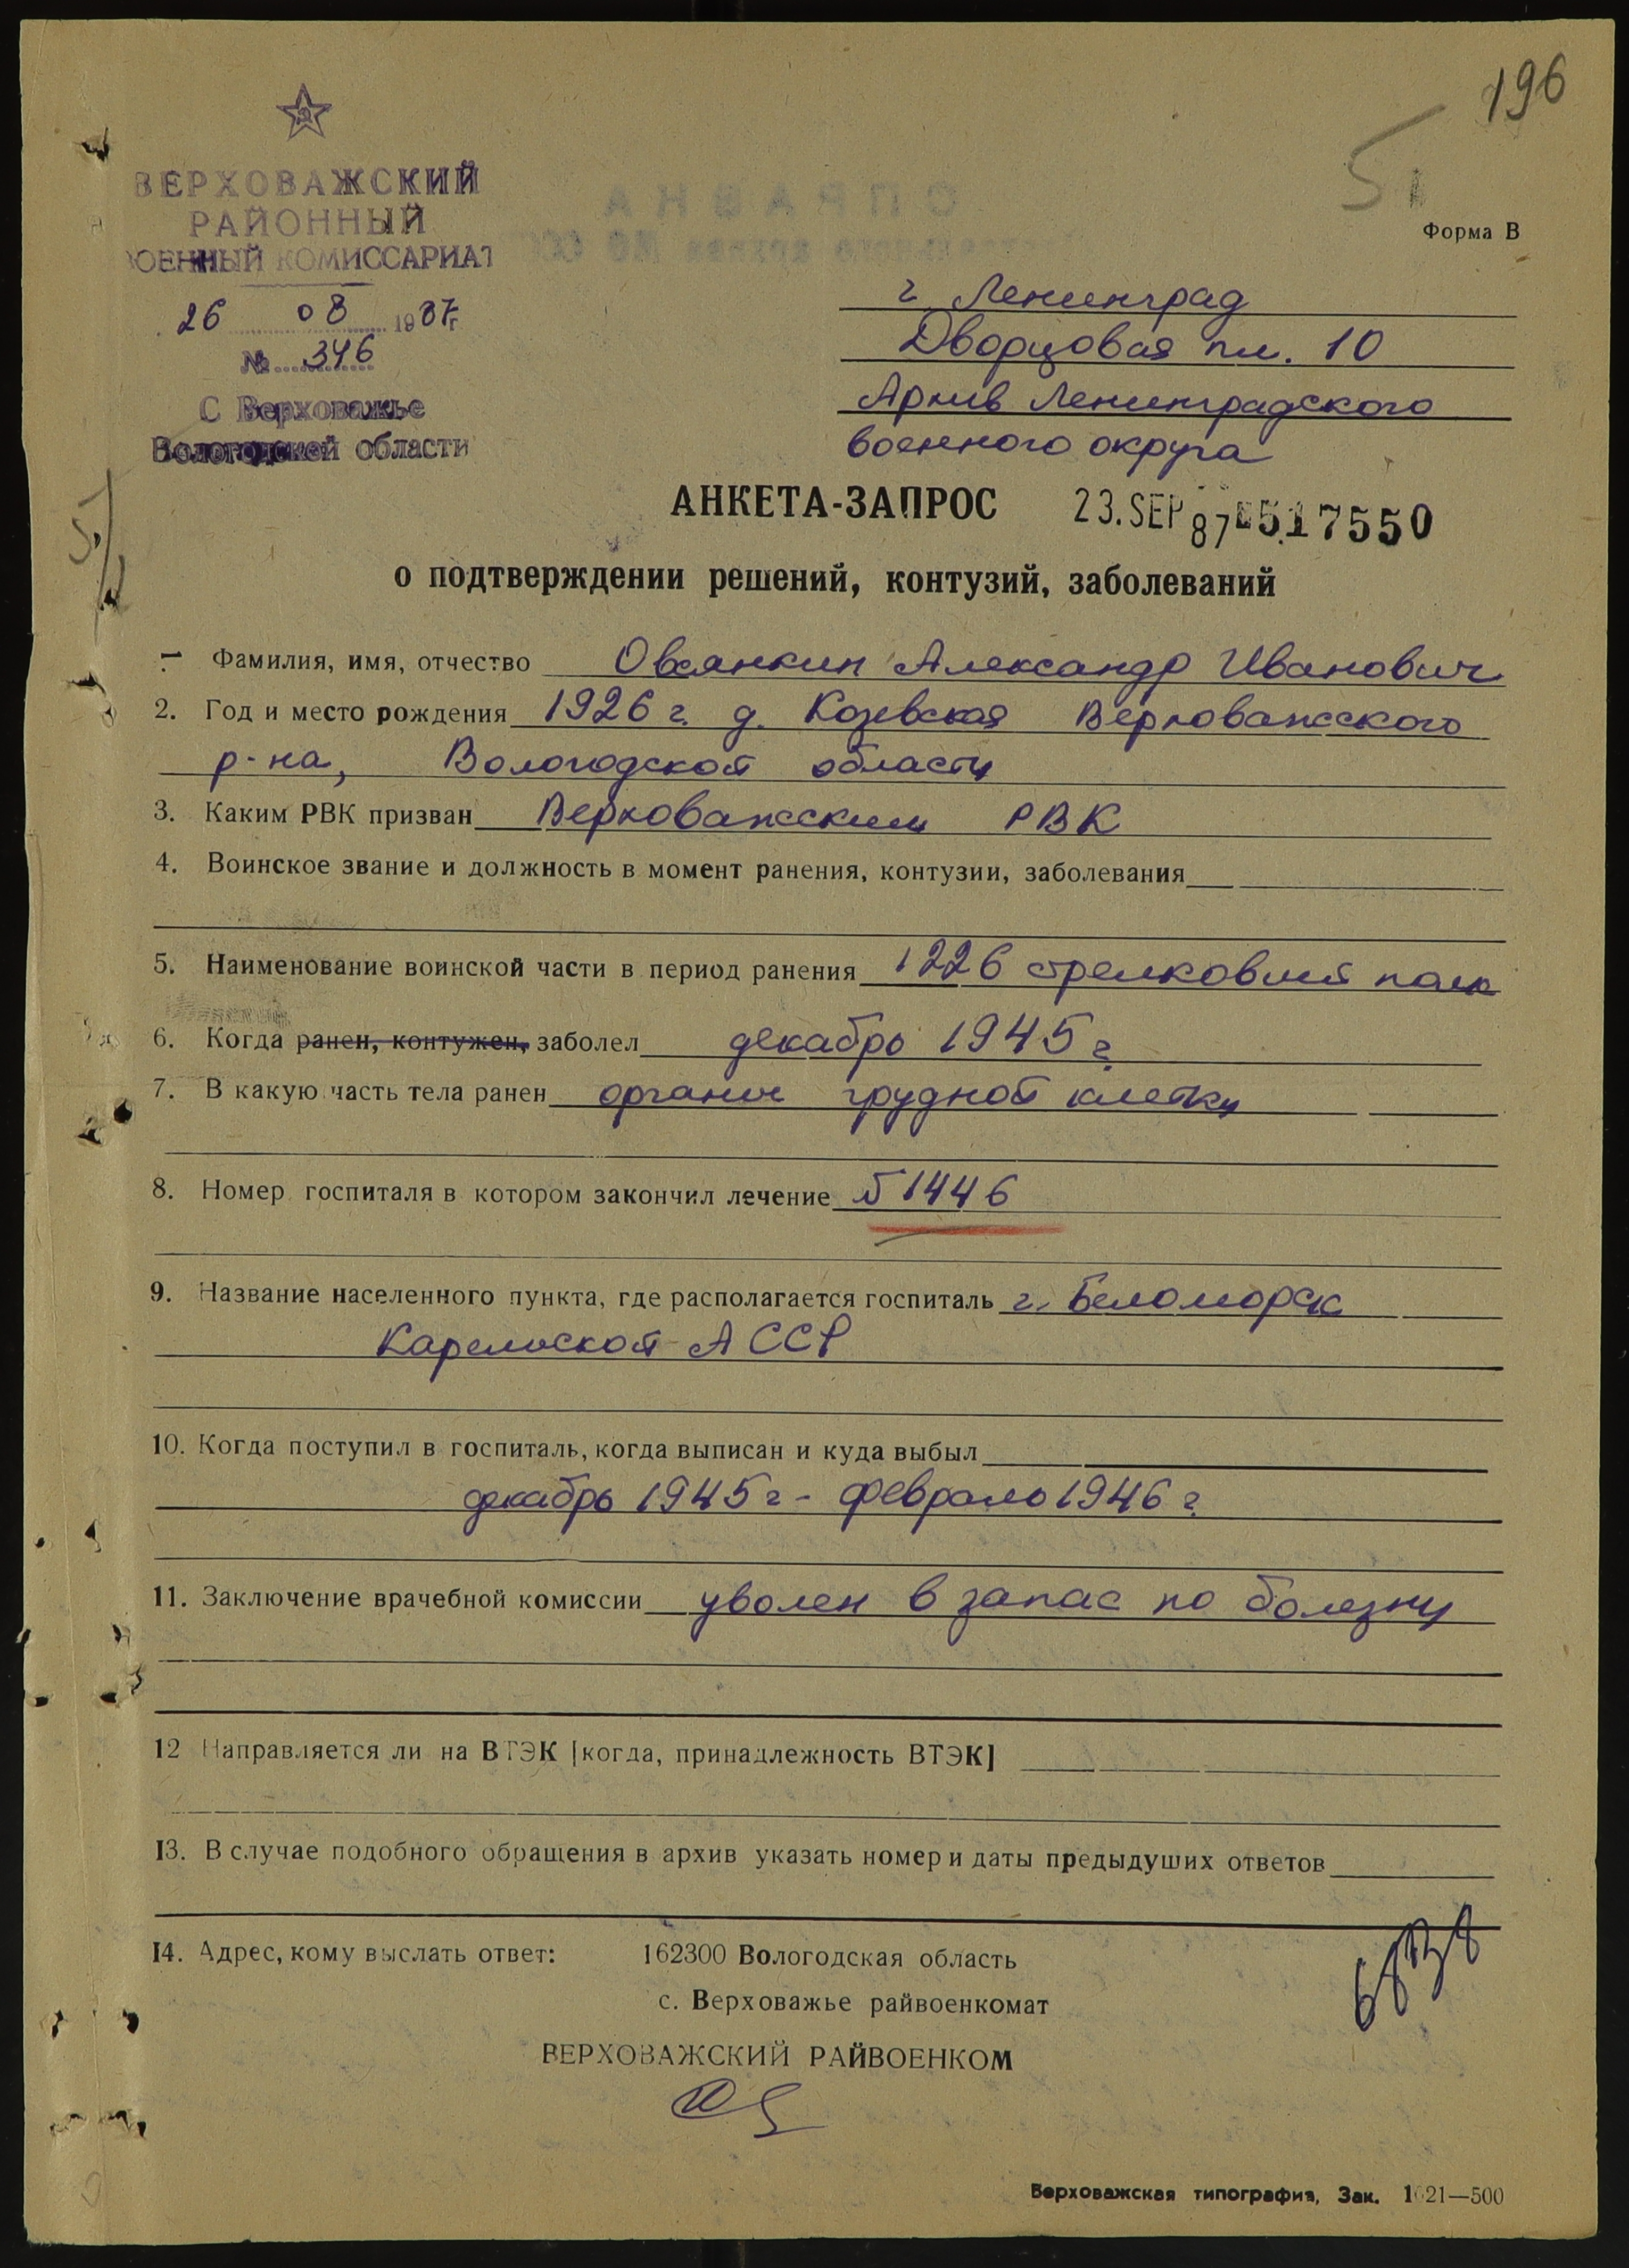 196
5
Форма В
ВЕРХОВАЖСКИЙ
РАЙОННЫЙ
ВОЕННЫЙ КОМИССАРИАТ
26 08 1987г
№ 346
С Верховажье
Вологодской области
г. Ленинград
Дворцовая пл. 10
Архив Ленинградского
военного округа
АНКЕТА-ЗАПРОС 23.SEP 87 517550
о подтверждении решений, контузий, заболеваний
1. Фамилия, имя, отчество Овсянкин Александр Иванович
2. Год и место рождения 1926 г. д. Козевская Верховажского
р-на, Вологодской области
3. Каким РВК призван Верховажским РВК
4. Воинское звание и должность в момент ранения, контузии, заболевания
5. Наименование воинской части в период ранения 1226 стрелковый полк
6. Когда ранен, контужен, заболел декабрь 1945 г.
7. В какую часть тела ранен органы грудной клетки
8. Номер госпиталя в котором закончил лечение №1446
9. Название населенного пункта, где располагается госпиталь г. Беломорск
Карельской АССР
10. Когда поступил в госпиталь, когда выписан и куда выбыл
декабрь 1945 г - февраль 1946 г.
11. Заключение врачебной комиссии уволен в запас по болезни
12 Направляется ли на ВТЭК [когда, принадлежность ВТЭК]
13. В случае подобного обращения в архив указать номер и даты предыдуших ответов
14. Адрес, кому выслать ответ: 162300 Вологодская область
с. Верховажье райвоенкомат
ВЕРХОВАЖСКИЙ РАЙВОЕНКОМ
Верховажская типография, Зак. 1621—500